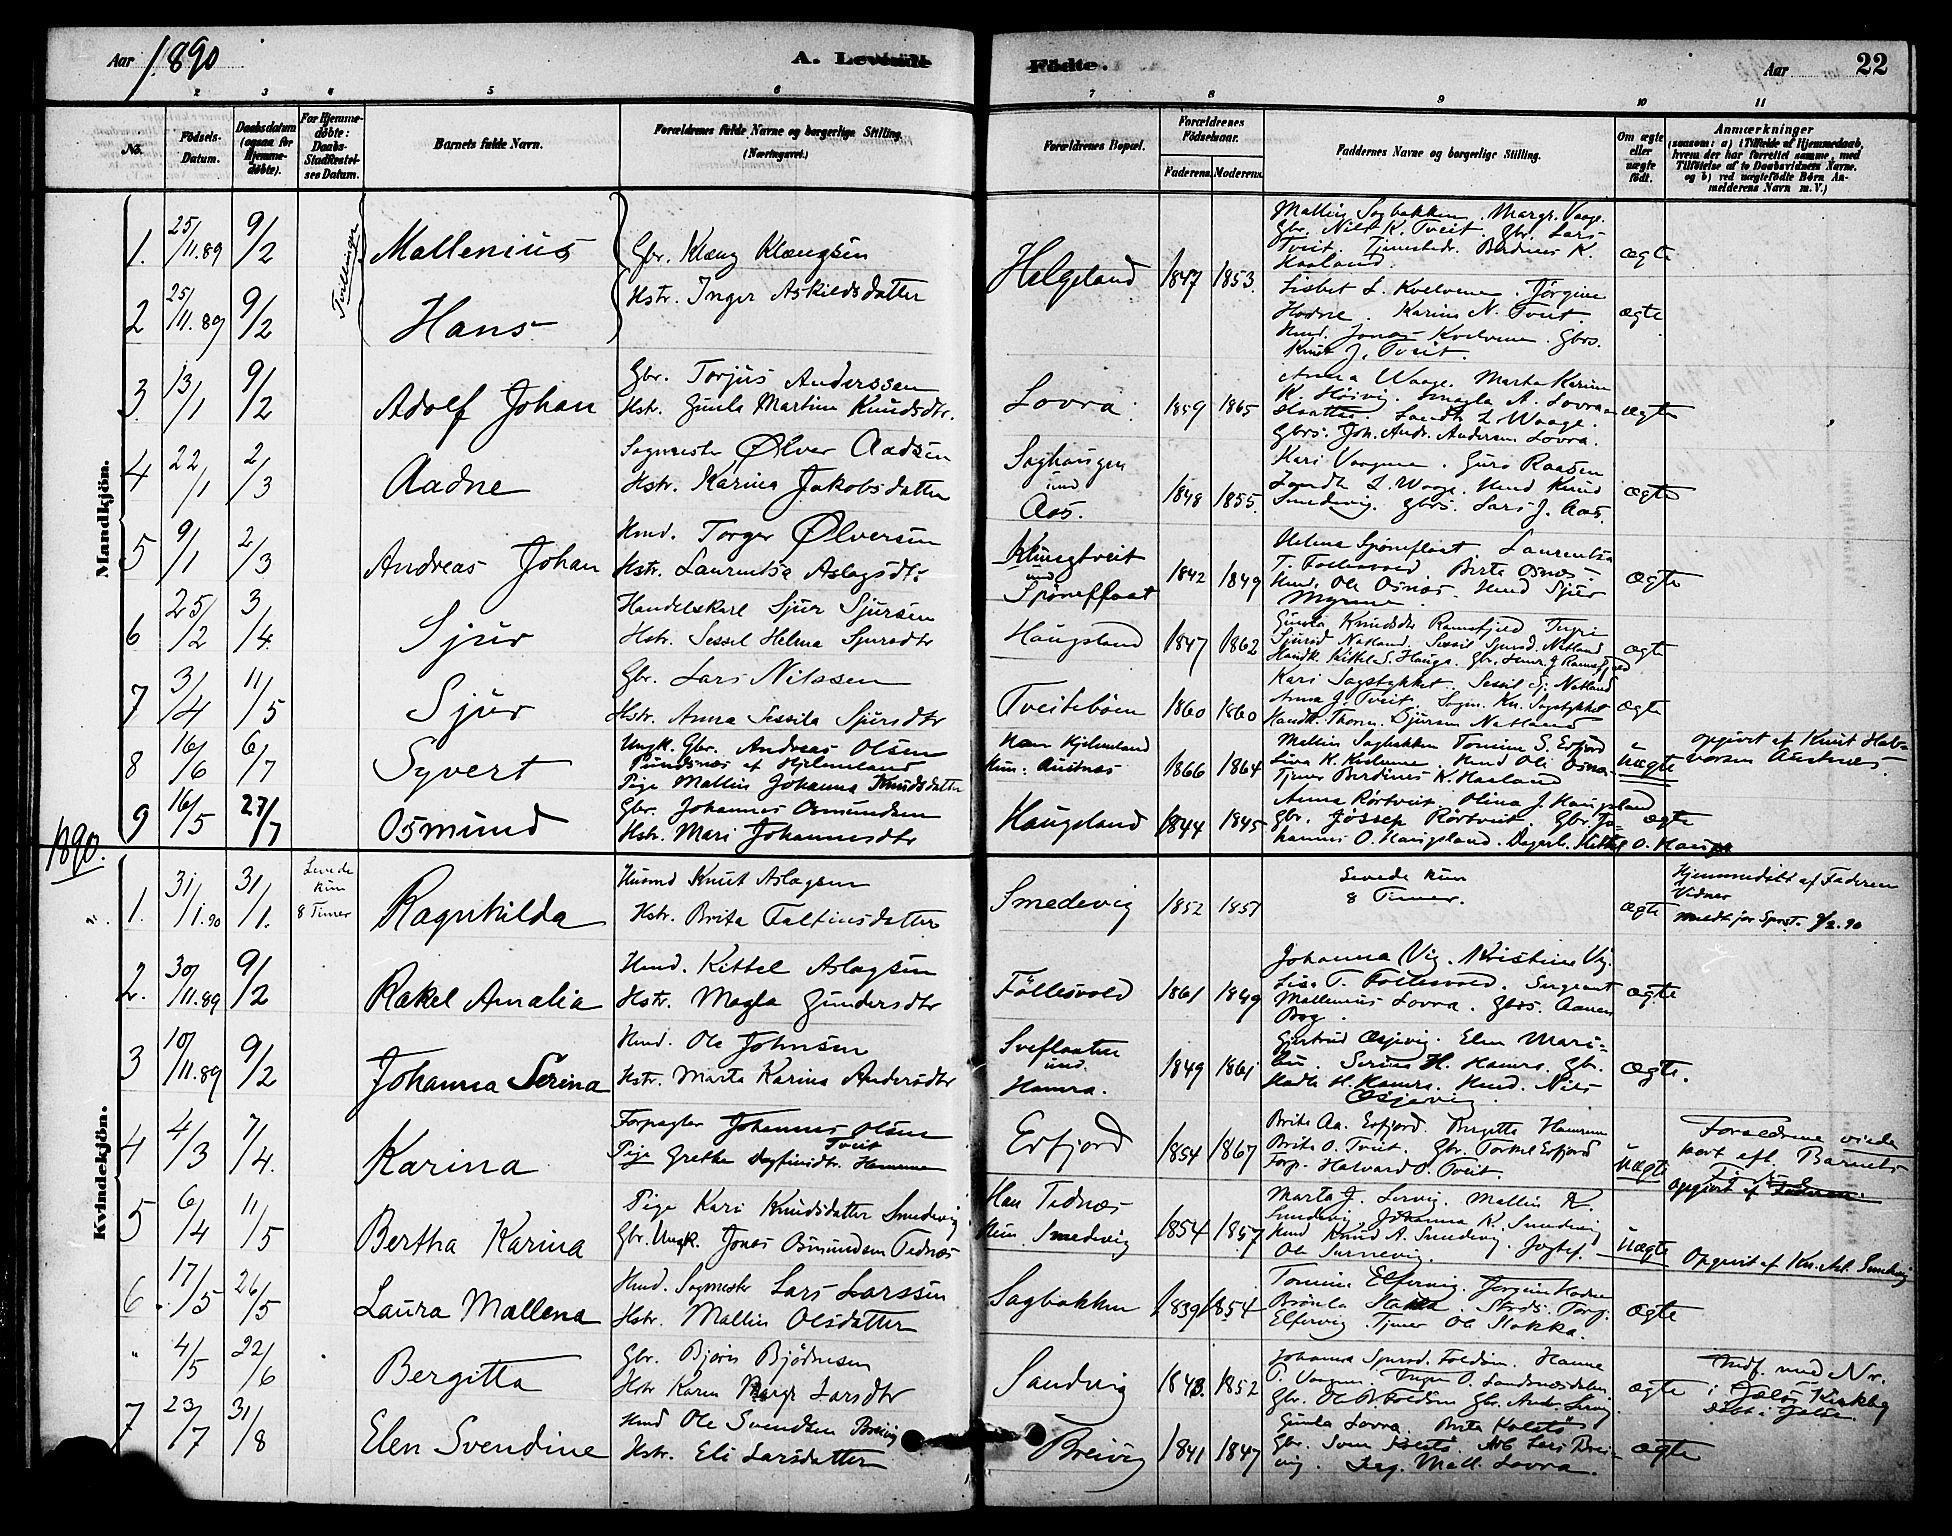 Aar 1890
A. Levende Fødte.
Aar 22
2 3 4 5 6 7 8 9 10 11
No.
Fødsels-Datum.
Daabsdatum (ogsaa for Hjemmedøbte).
For Hjemmedøbte: Daabs-Stadfæstelses Datum.
Barnets fulde Navn.
Forældrenes fulde Navne og borgerlige Stilling. (Næringsvei.)
Forældrenes Bopæl.
Forældrenes Fødselsaar.
Faderens. Moderens.
Faddernes Navne og borgerlige Stilling.
Om ægte eller uægte født.
Anmærkninger (saasom: a) i Tilfælde af Hjemmedaab, hvem der har forrettet samme, med Tilføielse af to Daabsvidners Navne. og b) ved uægtefødte Børn Anmelderens Navn m. V.)
Mandkjön.
1. 25/11.89 9/2 Tvillinger Mallenius Gbr. Klæng Klængsen Helgeland 1847 1853 Mallin Sagbakken. Margr. Vaage. Gbr. Nils K. Tveit. Gbr. Lars Tveit. Tjenestedr. Berdines K. Haaland. ægte
2 25/11.89 9/2 Hans Hstr. Inger Askildsdatter Lisbet L. Kvelvene. Jørgine Hodne. Karine N. Tveit. Hmd. Jonas Kvelvene. Gbrs. Knut J. Tveit. ægte
3. 13/1 9/2 Adolf Johan Gbr. Torjus Anderssen Hstr. Gunla Martine Knudsdtr. Lovra. 1859 1865 Anna Waage. Marta Karine K. Høivig. Magla A. Lovra. L. Waage. Gbrs. Joh. Andr. Andersen Lovra. ægte
4 22/1 2/3 Aadne Sagmester Ølver Aadsen Hstr. Karina Jakobsdatter Saghaugen und Aas. 1848 1855. Kari Vaagene. Guro Raasen L. Waage. Hmd Knud Smedevig. Gbrs. Lars J. Aas. ægte
5 9/1 2/3 Andreas Johan Hmd. Torger Ølversen Hstr. Laurentse Aslagsdtr Klungtveit und Spøneflaat 1842 1849 Helene Spøneflaat. Laurentse T. Follesvold. Berta Osnæs. Hmd. Ole Osnæs. Hmd Sjur ægte
6 25/2 3/4. Sjur Handelskarl Sjur Sjursen Hstr. Sessel Helene Sjursdtr Haugsland 1847 1862 Gunla Knudsdtr Ramsfjeld Sjursd. Natland. Sessel Sjursd. Natland Handk. Kittel S. Hauge. Gbr. ægte
7 3/4 11/5 Sjur Gbr. Lars Nilssen Hstr. Anna Sessila Sjursdtr Tveitebøen 1860 1860 Kari Sagstykket. Sessil Sj. Natland Anna J. Tveit. Sagm. Kn. Sagstykket Handk. Thorm. Sjursen Natland ægte
8 16/6 6/7 Syvert Ungk. Gbr. Andreas Olsen Pundsnes af Hjelmeland Pige Mallin Johanna Knudsdatter Han Hjelmeland Hun: Austnæs 1866 1864 Mallin Sagbakken Tomine S. Erfjord Liva K. Kvelvene. Hmd Ole Osnæs. Tjener Berdines K. Haaland uægte opgivet af Knut Halvorsen Austnæs
9 16/5 27/7 Osmund Gbr. Johannes Osmundsen Hstr. Mari Johannesdtr Haugsland 1844 1845 Anna Rørtveit. Olina J. Haugsland Gbr. Jossep Rørtveit. Gbr. Johannes O. Haugsland. Dagarb. Kittel O. Hauge ægte
1890.
Kvindekjön.
1. 31/1.90 31/1. Levede kun 8 Timer Ragnhilda Husmd Knut Aslagsen Hstr. Brita Faltinsdatter Smedevig 1852 1851 Levede kun 8 Timer. ægte Hjemmedøbt af Faderen Vidner meldt for Sprst. 9/2.90
2. 30/11.89 9/2 Rakel Amalia Hmd. Kittel Aslagsen Hstr. Magla Gundersdtr Föllesvold 1861 1849 Johanna Vig. Kristine Vig. Lise T. Follesvold. Sergeant Mallenius Lovra. Gbrs. Aanen ægte
3 10/11.89 9/2 Johanna Serina Hmd. Ole Johnsen Hstr. Marta Karina Andersdtr Sveflaaten und Hamra. 1849 1861 Gjertrud Osjevig. Elen Maribu. Serine H. Hamra. Gbr. Hadle H. Hamra. Hmd. Nils Osjevig. ægte.
4 4/3 7/4. Karina Forpagter Johannes Olsen Tveit Pige Grethe Dagfinsdtr. Hamme Erfjord 1854 1867 Brite Aa. Erfjord. Bergitte Hamme Brite O. Tveit. Gbr. Torkel Erfjord Forp. Halvard O. Tveit. uægte Forældrene viede kort eft. Barnets opgivet af Faderen.
5 6/4 11/5 Bertha Karina Pige Kari Knudsdatter Smedevig Gbr. Ungk. Jonas Osmundsen Tednæs Han Tednæs Hun Smedevig 1854 1857 Marta J. Lervig. Mallin K. Smedevig Johanna K. Smedevig Hmd Knud A. Smedevig. Ole uægte Opgivet af Kn. Asl. Smedevig
6 17/5 26/5 Laura Mallena Hmd. Sagmester Lars Larssen Hstr. Mallin Olsdatter Sagbakken 1839 1854 Tomine Elfervig. Jørgine Hodne Brønla Stokka. Elfervig. Tjener Ole Stokka. ægte
" 4/5 22/6 Bergitta Gbr. Bjørn Bjørnsen Hstr Karen Marg. Larsdtr Sandvig 1843. 1852 Johanna Sjursd. Foldøen. Hanne T. Vaagen. Inger O. Landsnesdalen. Gbr. Ole Foldøen Gbr. Andr. Lervig ægte Indf. med Nr. i Jelsø Kirkebog Døbt i Jelse
7 23/7 31/8 Elen Svendine Hmd Ole Svendsen Breivig Hstr. Eli Larsdatter Breivig 1841 1847 Gunla Lovra. Brita Kolstø Gbr. Sven Kolstø. Arb Lars Breivig. Mall. Lovra. ægte